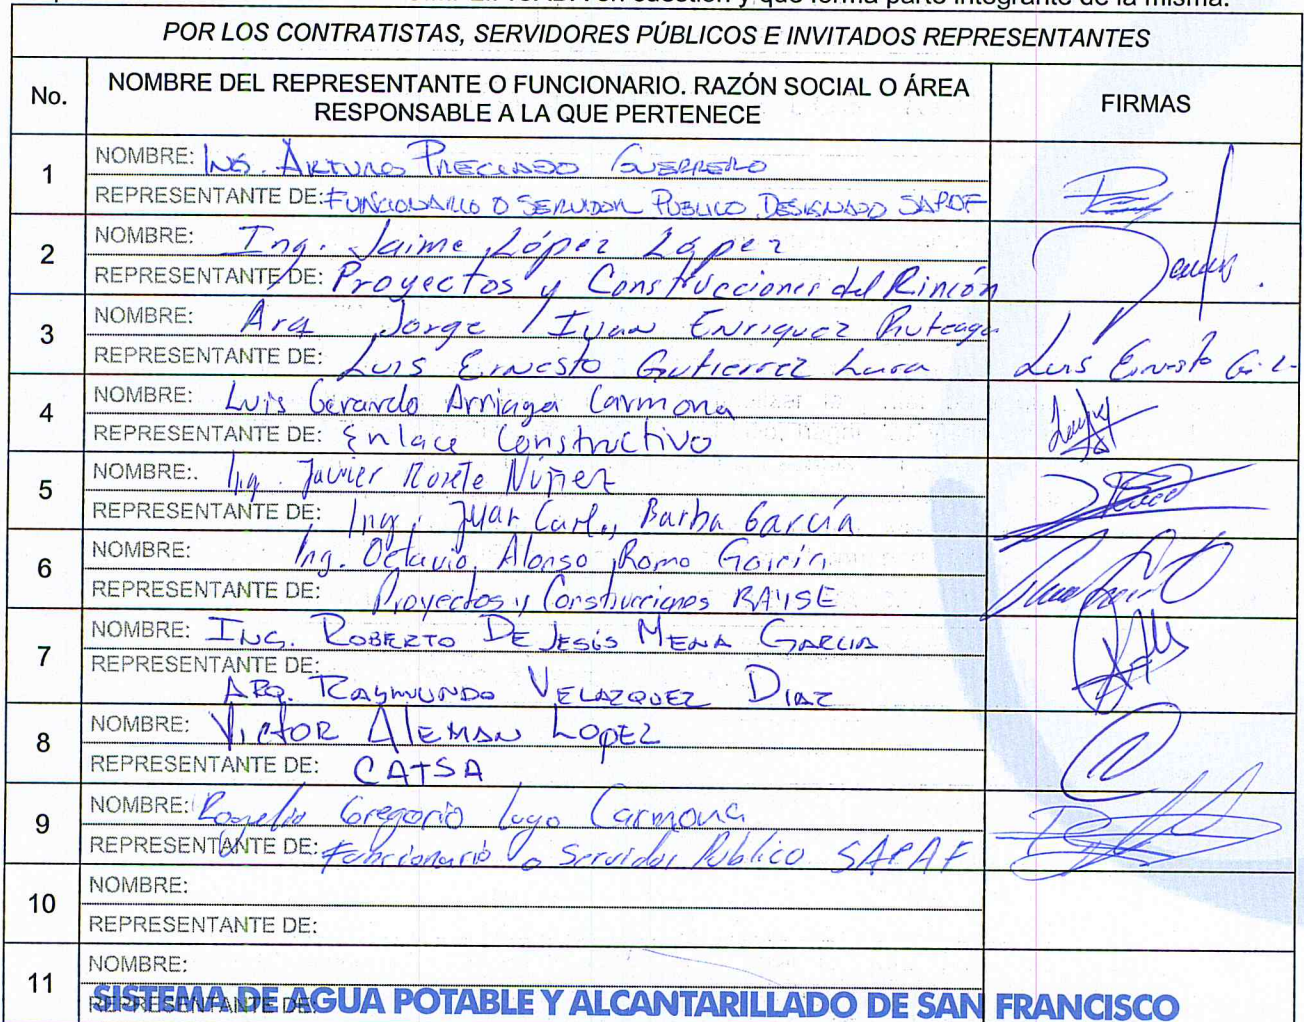 en cuestión y que forma parte integrante de la misma.
POR LOS CONTRATISTAS, SERVIDORES PÚBLICOS E INVITADOS REPRESENTANTES
No.
NOMBRE DEL REPRESENTANTE O FUNCIONARIO. RAZÓN SOCIAL O ÁREA
RESPONSABLE A LA QUE PERTENECE
FIRMAS
1
NOMBRE: ING. ARTURO PRECIADO GUERRERO
REPRESENTANTE DE: FUNCIONARIO O SERVIDOR PUBLICO DESIGNADO SAPAF
2
NOMBRE: Ing. Jaime López López
REPRESENTANTE DE: Proyectos y Construcciones del Rincón
3
NOMBRE: Arq Jorge Ivan Enriquez
REPRESENTANTE DE: Luis Ernesto Gutierrez Lara
Luis Ernesto G. L.
4
NOMBRE: Luis Gerardo Arriaga Carmona
REPRESENTANTE DE: Enlace Constructivo
5
NOMBRE:. Ing. Javier Núñez
REPRESENTANTE DE: Ing. Juan Carlos Barba García
6
NOMBRE: Ing. Octavio Alonso Romo García
REPRESENTANTE DE: Proyectos y Construcciones RAYSE
7
NOMBRE: ING. ROBERTO DE JESÚS MENA GARCIA
REPRESENTANTE DE:
ARQ. RAYMUNDO VELAZQUEZ DIAZ
8
NOMBRE: VICTOR ALEMAN LOPEZ
REPRESENTANTE DE: CATSA
9
NOMBRE: Rogelio Gregorio Lugo Carmona
REPRESENTANTE DE: Funcionario o Servidor Publico SAPAF
10
NOMBRE:
REPRESENTANTE DE:
11
NOMBRE:
REPRESENTANTE DE:
SISTEMA DE AGUA POTABLE Y ALCANTARILLADO DE SAN FRANCISCO